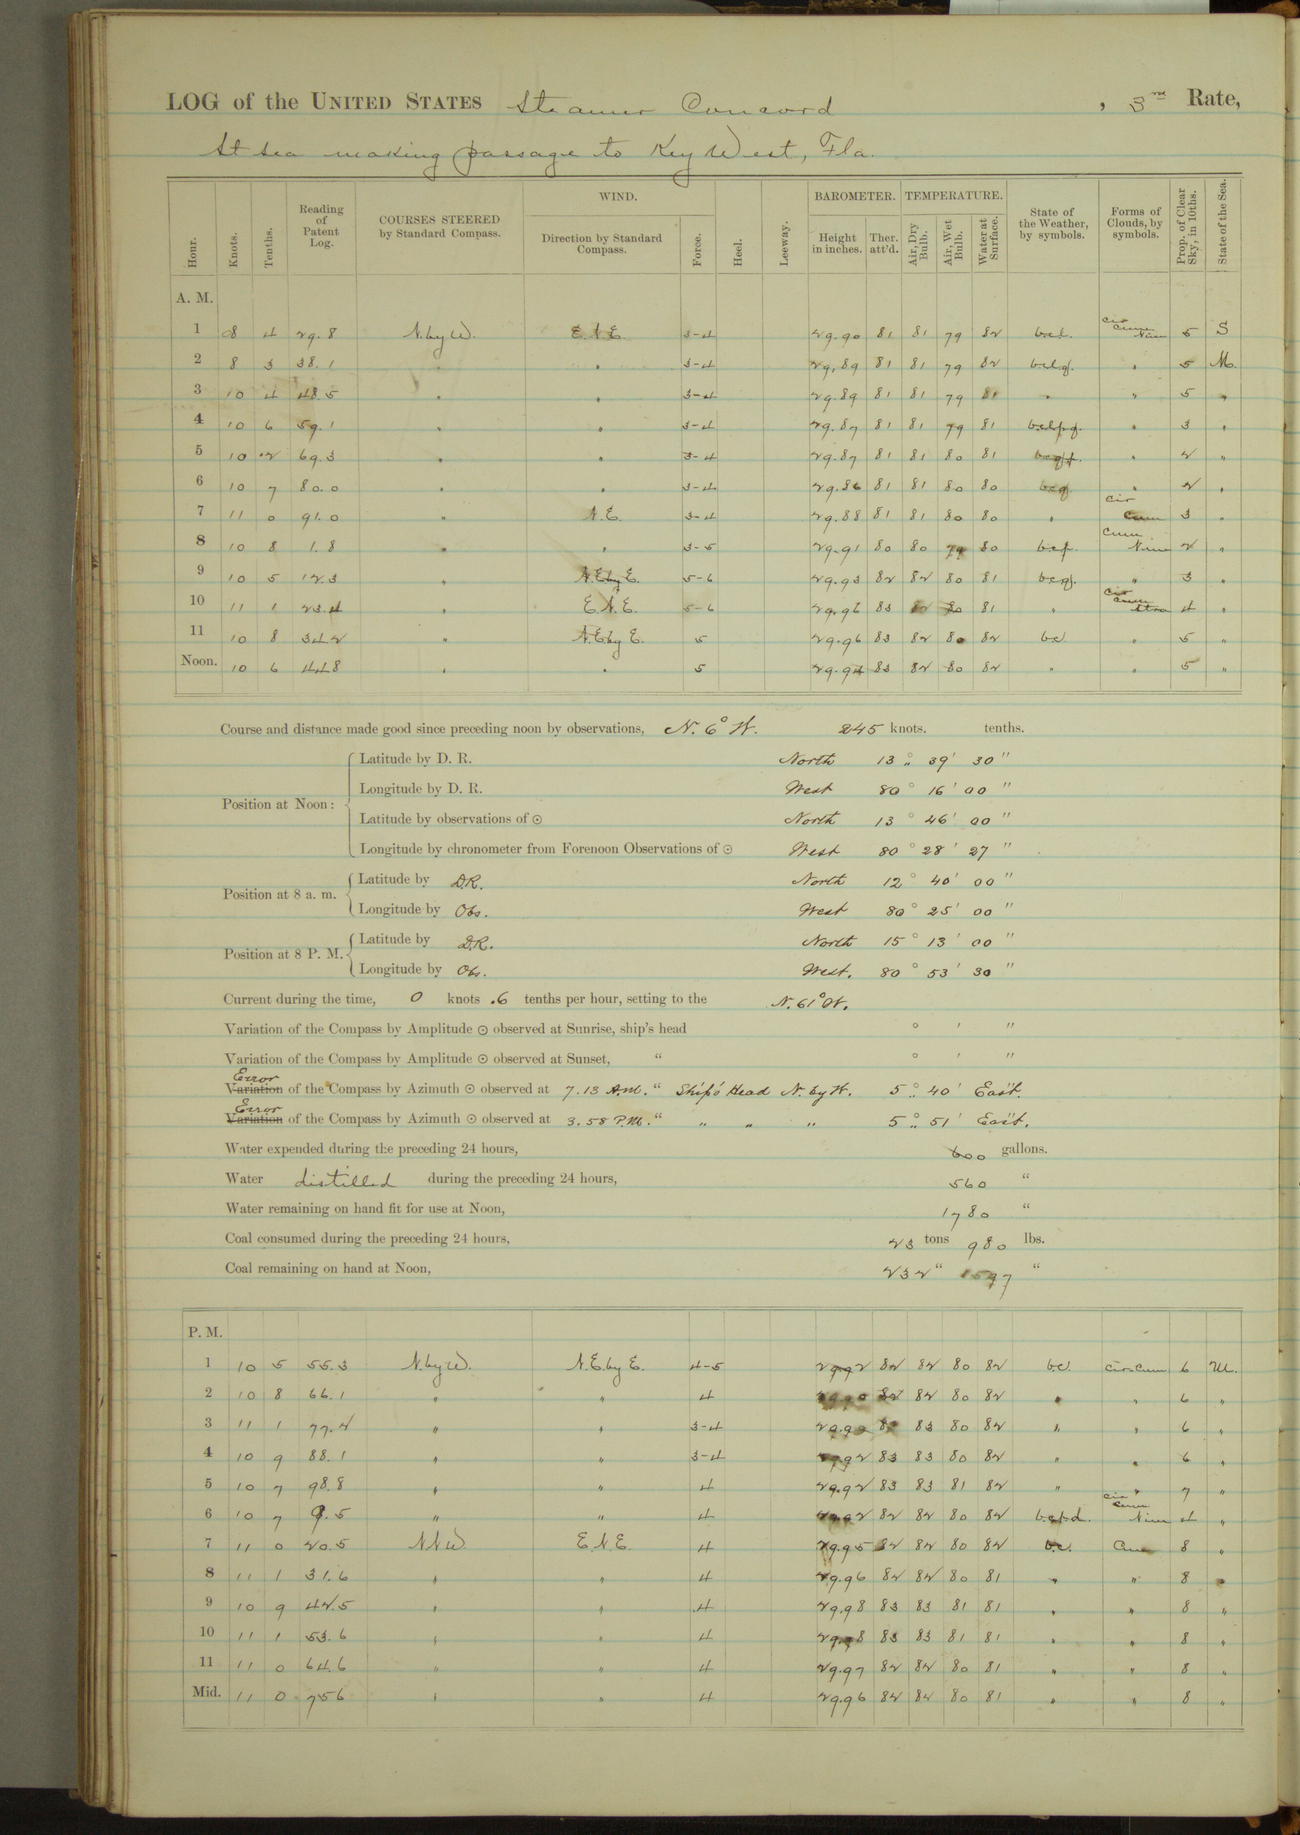 LOG of the UNITED STATES Steamer Concord , 3rd Rate,
At sea making passage to Key West, Fla.
Hour. Knots. Tenths. Reading of Patent Log. COURSES STEERED by Standard Compass. WIND. Direction by Standard Compass. Force. Heel. Leeway. BAROMETER. Height in inches. Ther. att'd. TEMPERATURE. Air, Dry Bulb. Air, Wet Bulb. Water at Surface. State of the Weather, by symbols. Forms of Clouds, by symbols. Prop. of Clear Sky, in 10ths. State of the Sea.
A. M.
1 8 4 29.8 N. by W. E.N.E. 3-4 29.90 81 81 79 82 b.c.l. cir cum Nim 5 S
2 8 3 38.1 " " 3-4 29.89 81 81 79 82 b.c.l.q. " 5 M.
3 10 4 48.5 " " 3-4 29.89 81 81 79 81 " " 5 "
4 10 6 59.1 " " 3-4 29.87 81 81 79 81 b.c.l.p.q. " 3 "
5 10 2 69.3 " " 3-4 29.87 81 81 80 81 " 2 "
6 10 7 80.0 " " 3-4 29.86 81 81 80 80 b.c.q. " 2 "
7 11 0 91.0 " N.E. 3-4 29.88 81 81 80 80 " cir cum 3 "
8 10 8 1.8 " " 3-5 29.91 80 80 79 80 b.c.p. cum Nim 2 "
9 10 5 12.3 " N.E. by E. 5-6 29.93 82 82 80 81 b.c.q. " 3 "
10 11 1 23.4 " E.N.E. 5-6 29.96 83 80 81 " cir cum stra 4 "
11 10 8 34.2 " N.E. by E. 5 29.96 83 82 80 82 b.c. " 5 "
Noon. 10 6 44.8 " " 5 29.94 83 82 80 82 " " 5 "
Course and distance made good since preceding noon by observations, N. 6° W. 245 knots. tenths.
Position at Noon: Latitude by D. R. North 13 ° 39 ' 30 "
Longitude by D. R. West 80 ° 16 ' 00 "
Latitude by observations of ⊙ North 13 ° 46 ' 00 "
Longitude by chronometer from Forenoon Observations of ⊙ West 80 ° 28 ' 27 "
Position at 8 a. m. Latitude by D.R. North 12 ° 40 ' 00 "
Longitude by Obs. West 80 ° 25 ' 00 "
Position at 8 P. M. Latitude by D.R. North 15 ° 13 ' 00 "
Longitude by Obs. West. 80 ° 53 ' 30 "
Current during the time, 0 knots .6 tenths per hour, setting to the N. 61° W.
Variation of the Compass by Amplitude ⊙ observed at Sunrise, ship's head ° ' "
Variation of the Compass by Amplitude ⊙ observed at Sunset, " ° ' "
Error
Variation of the Compass by Azimuth ⊙ observed at 7.13 A.M. " Ship's Head N. by W. 5 ° 40 ' East.
Error
Variation of the Compass by Azimuth ⊙ observed at 3.58 P.M. " " " " 5 ° 51 ' East.
Water expended during the preceding 24 hours, 600 gallons.
Water distilled during the preceding 24 hours, 560 "
Water remaining on hand fit for use at Noon, 1780 "
Coal consumed during the preceding 24 hours, 23 tons 980 lbs.
Coal remaining on hand at Noon, 232 " 1597 "
P. M.
1 10 5 55.3 N. by W. N.E. by E. 4-5 29.92 82 82 80 82 b.c. cir-cum 6 M.
2 10 8 66.1 " " 4 29.90 82 82 80 82 " " 6 "
3 11 1 77.4 " " 3-4 29.90 83 80 82 " " 6 "
4 10 9 88.1 " " 3-4 29.92 83 83 80 82 " " 6 "
5 10 7 98.8 " " 4 29.92 83 83 81 82 " " 7 "
6 10 7 9.5 " " 4 29.92 82 82 80 82 cir cum Nim 4 "
7 11 0 20.5 N.N.W. E.N.E. 4 29.95 82 82 80 82 b.c. Cum 8 "
8 11 1 31.6 " " 4 29.96 82 82 80 81 " " 8 "
9 10 9 42.5 " " 4 29.98 83 83 81 81 " " 8 "
10 11 1 53.6 " " 4 29.98 83 83 81 81 " " 8 "
11 11 0 64.6 " " 4 29.97 82 82 80 81 " " 8 "
Mid. 11 0 75.6 " " 4 29.96 82 82 80 81 " " 8 "